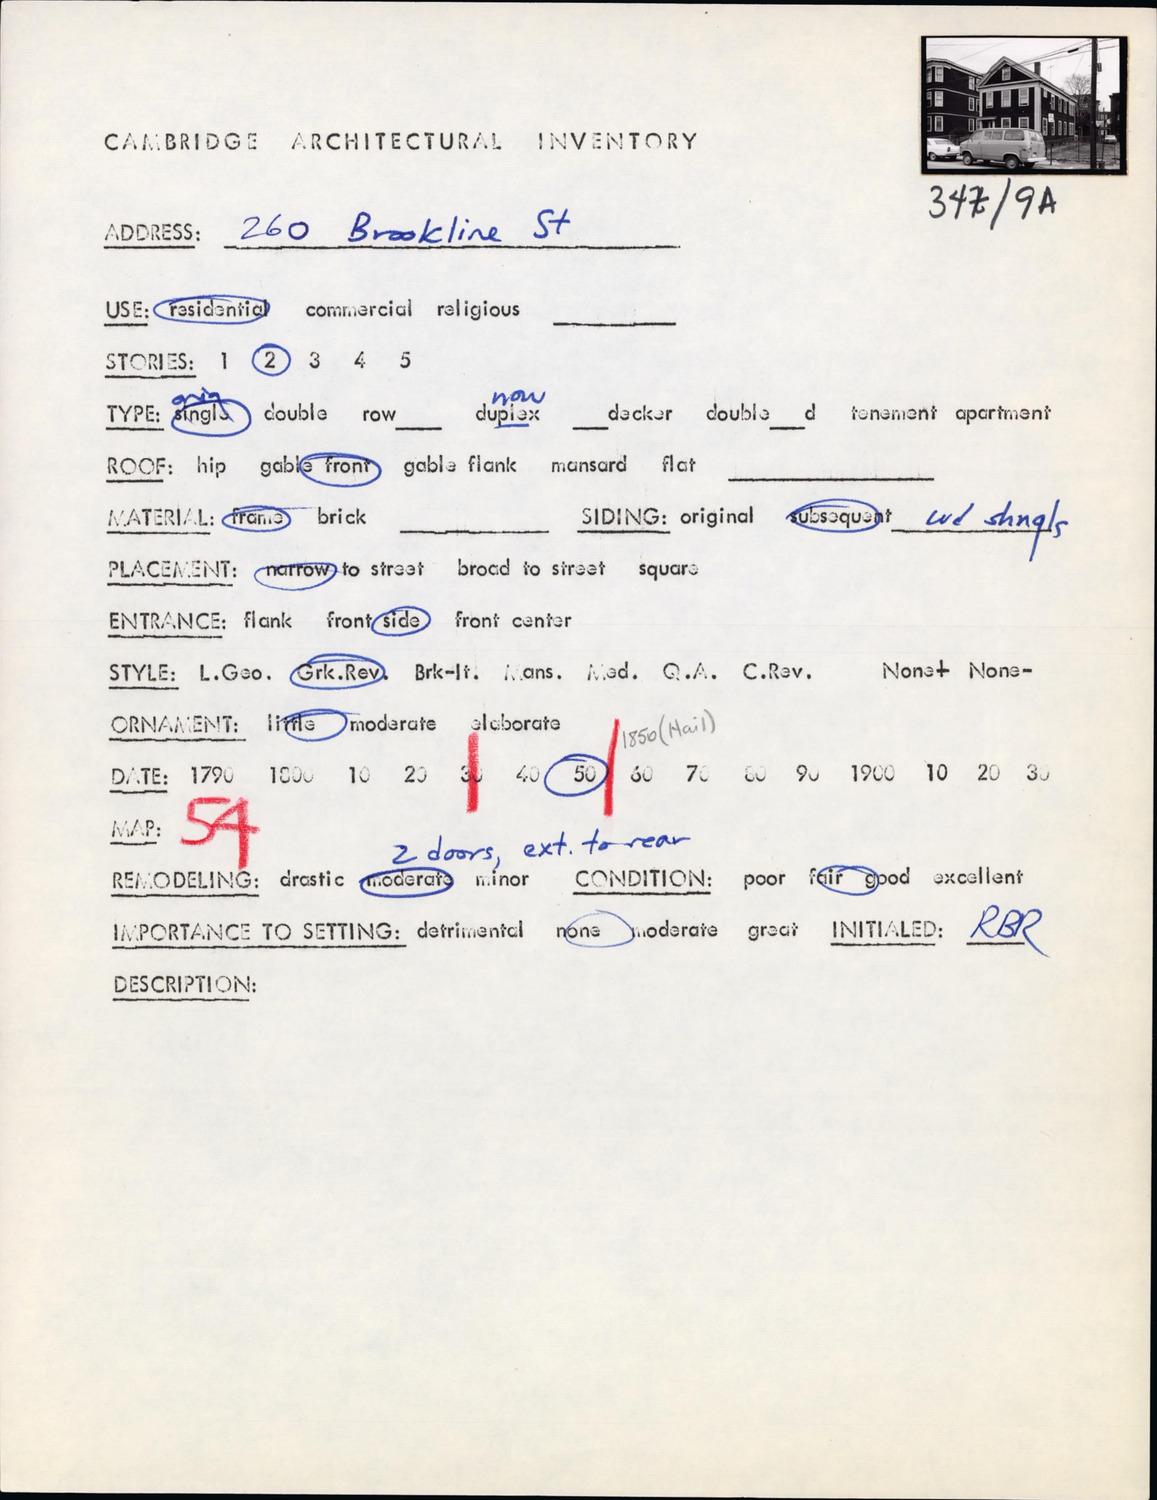 CAMBRIDGE ARCHITECTURAL INVENTORY
/9A
ADDRESS: 260 Brookline St
USE: residential commercial religious
STORIES: 1 2 3 4 5
orig now
TYPE: single double row___ duplex ___decker double___d tenement apartment
ROOF: hip gable front gable flank mansard flat
MATERIAL: frame brick SIDING: original subsequent wd shngls
PLACEMENT: narrow to street broad to street square
ENTRANCE: flank front side front center
STYLE: L.Geo. Grk.Rev. Brk-It. Mans. Med. Q.A. C.Rev. None+ None-
ORNAMENT: little moderate elaborate
1850 (Hail)
DATE: 1790 1800 10 20 30 40 50 60 70 80 90 1900 10 20 30
MAP: 54
2 doors, ext. to rear
REMODELING: drastic moderate minor CONDITION: poor fair good excellent
IMPORTANCE TO SETTING: detrimental none moderate great INITIALED: RBR
DESCRIPTION: